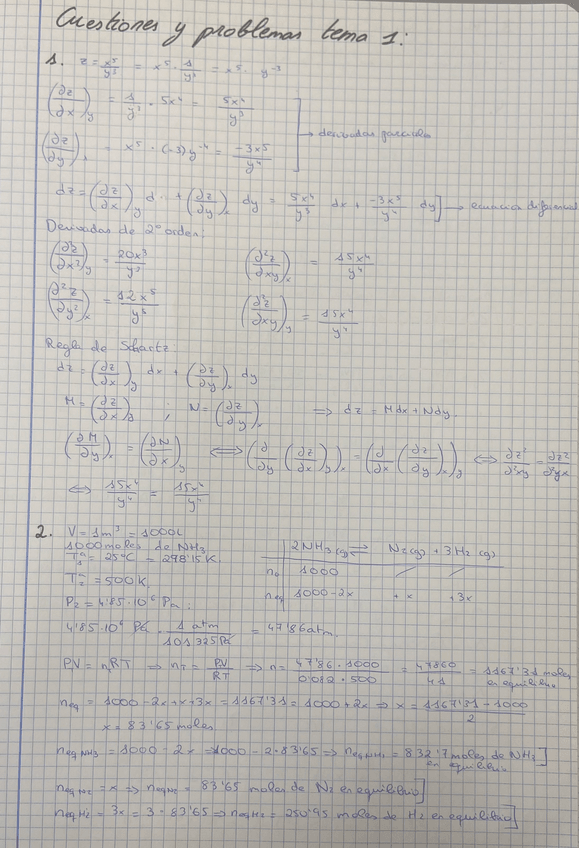 Cuestiones y problemas tema 1:
1. z = x⁵/y³ = x⁵ · 1/y³ = x⁵ · y⁻³
(∂z/∂x)y = 1/y³ · 5x⁴ = 5x⁴/y³
→ derivadas parciales
(∂z/∂y)x = x⁵ · (-3)y⁻⁴ = -3x⁵/y⁴
dz = (∂z/∂x)y d + (∂z/∂y)x dy = 5x⁴/y³ dx + -3x⁵/y⁴ dy] → ecuación diferencial
Derivadas de 2º orden:
(∂²z/∂x²)y = 20x³/y³ (∂²z/∂xy)x = 15x⁴/y⁴
(∂²z/∂y²)x = 12x⁵/y⁵ (∂²z/∂xy)y = 15x⁴/y⁴
Regla de Schartz:
dz = (∂z/∂x)y dx + (∂z/∂y)x dy
M = (∂z/∂x)y ; N = (∂z/∂y)x ⇒ dz = Mdx + Ndy.
(∂M/∂y)x = (∂N/∂x)y ⇔ (∂/∂y (∂z/∂x)y)x = (∂/∂x (∂z/∂y)x)y ⇔ ∂z²/∂²xy = ∂z²/∂²yx
⇔ 15x⁴/y⁴ = 15x⁴/y⁴
2. V = 1m³ = 1000L
1000 moles de NH₃
T₁ª = 25ºC = 298'15K.
2NH₃(g) ⇌ N₂(g) + 3H₂(g)
n₀ 1000
T₂ª = 500K.
neq 1000-2x +x +3x
P₂ = 4'85·10⁶ Pa.
4'85·10⁶ Pa · 1 atm/101325Pa = 47'86atm.
PV = nRT ⇒ nT = PV/RT ⇒ n = 47'86 · 1000/0'082 · 500 = 47860/41 = 1167'31 moles en equilibrio
neq = 1000 - 2x + x + 3x = 1167'31 = 1000 + 2x ⇒ x = 1167'31 - 1000/2
x = 83'65 moles
neq NH₃ = 1000 - 2x ⇒ 1000 - 2·83'65 ⇒ neq NH₃ = 832'7 moles de NH₃ en equilibrio]
neq N₂ = x ⇒ neq N₂ = 83'65 moles de N₂ en equilibrio]
neq H₂ = 3x = 3 · 83'65 ⇒ neq H₂ = 250'95 moles de H₂ en equilibrio]